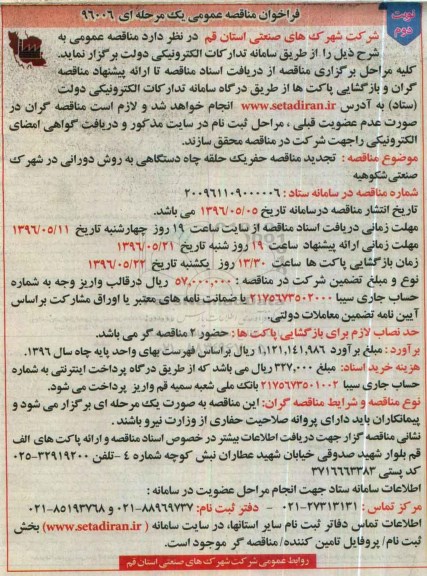 نوبت دوم
فراخوان مناقصه عمومی یک مرحله ای ۹۶۰۰۶
شرکت شهرک های صنعتی استان قم در نظر دارد مناقصه عمومی به
شرح ذیل را از طریق سامانه تدارکات الکترونیکی دولت برگزار نماید.
کلیه مراحل برگزاری مناقصه از دریافت اسناد مناقصه تا ارائه پیشنهاد مناقصه
گران و بازگشایی پاکت ها از طریق درگاه سامانه تدارکات الکترونیکی دولت
(ستاد) به آدرس www.setadiran.ir انجام خواهد شد و لازم است مناقصه گران در
صورت عدم عضویت قبلی ، مراحل ثبت نام در سایت مذکور و دریافت گواهی امضای
الکترونیکی راجهت شرکت در مناقصه محقق سازند.
موضوع مناقصه : تجدید مناقصه حفریک حلقه چاه دستگاهی به روش دورانی در شهرک
صنعتی شکوهیه
شماره مناقصه در سامانه ستاد : ۲۰۰۹۶۱۱۰۹۰۰۰۰۰۶
تاریخ انتشار مناقصه درسامانه تاریخ ۱۳۹۶/۰۵/۰۵ می باشد.
مهلت زمانی دریافت اسناد مناقصه از سایت ساعت ۱۹ روز چهارشنبه تاریخ ۱۳۹۶/۰۵/۱۱
مهلت زمانی ارائه پیشنهاد ساعت ۱۹ روز شنبه تاریخ ۱۳۹۶/۰۵/۲۱
زمان بازگشایی پاکت ها ساعت ۱۳/۳۰ روز یکشنبه تاریخ ۱۳۹۶/۰۵/۲۲
نوع و مبلغ تضمین شرکت در مناقصه : ۵۷,۰۰۰,۰۰۰ ریال درقالب واریز وجه به شماره
حساب جاری سیبا ۲۱۷۵۶۷۳۵۰۲۰۰۰ یا ضمانت نامه های معتبر یا اوراق مشارکت براساس
آیین نامه تضمین معاملات دولتی.
حد نصاب لازم برای بازگشایی پاکت ها : حضور ۲ مناقصه گر می باشد.
برآورد : مبلغ برآورد ۱,۱۲۱,۱۴۱,۹۸۶ ریال براساس فهرست بهای واحد پایه چاه سال ۱۳۹۶.
هزینه خرید اسناد: مبلغ ۳۲۷,۰۰۰ ریال می باشد که از طریق درگاه پرداخت اینترنتی به شماره
حساب جاری سیبا ۲۱۷۵۶۷۳۵۰۱۰۰۲ بانک ملی شعبه سمیه قم واریز پرداخت می شود.
نوع مناقصه و شرایط مناقصه گران: این مناقصه به صورت یک مرحله ای برگزار می شود و
پیمانکاران باید دارای پروانه صلاحیت حفاری از وزارت نیرو باشند .
نشانی مناقصه گزار جهت دریافت اطلاعات بیشتر در خصوص اسناد مناقصه و ارائه پاکت های الف
قم بلوار شهید صدوقی خیابان شهید عطاران نبش کوچه شماره ٤ -تلفن ۳۲۹۱۹۲۰۰-۰۲۵
کد پستی ۳۷۱۶۶۶۳۳۸۳
اطلاعات سامانه ستاد جهت انجام مراحل عضویت در سامانه :
مرکز تماس : ۲۷۳۱۳۱۳۱-۰۲۱ - دفتر ثبت نام: ۸۸۹۶۹۷۳۷-۰۲۱ و ۸۵۱۹۳۷۶۸-۰۲۱
اطلاعات تماس دفاتر ثبت نام سایر استانها، در سایت سامانه ( www.setadiran.ir) بخش
ثبت نام/ پروفایل تامین کننده/ مناقصه گر موجود است.
روابط عمومی شرکت شهرک های صنعتی استان قم